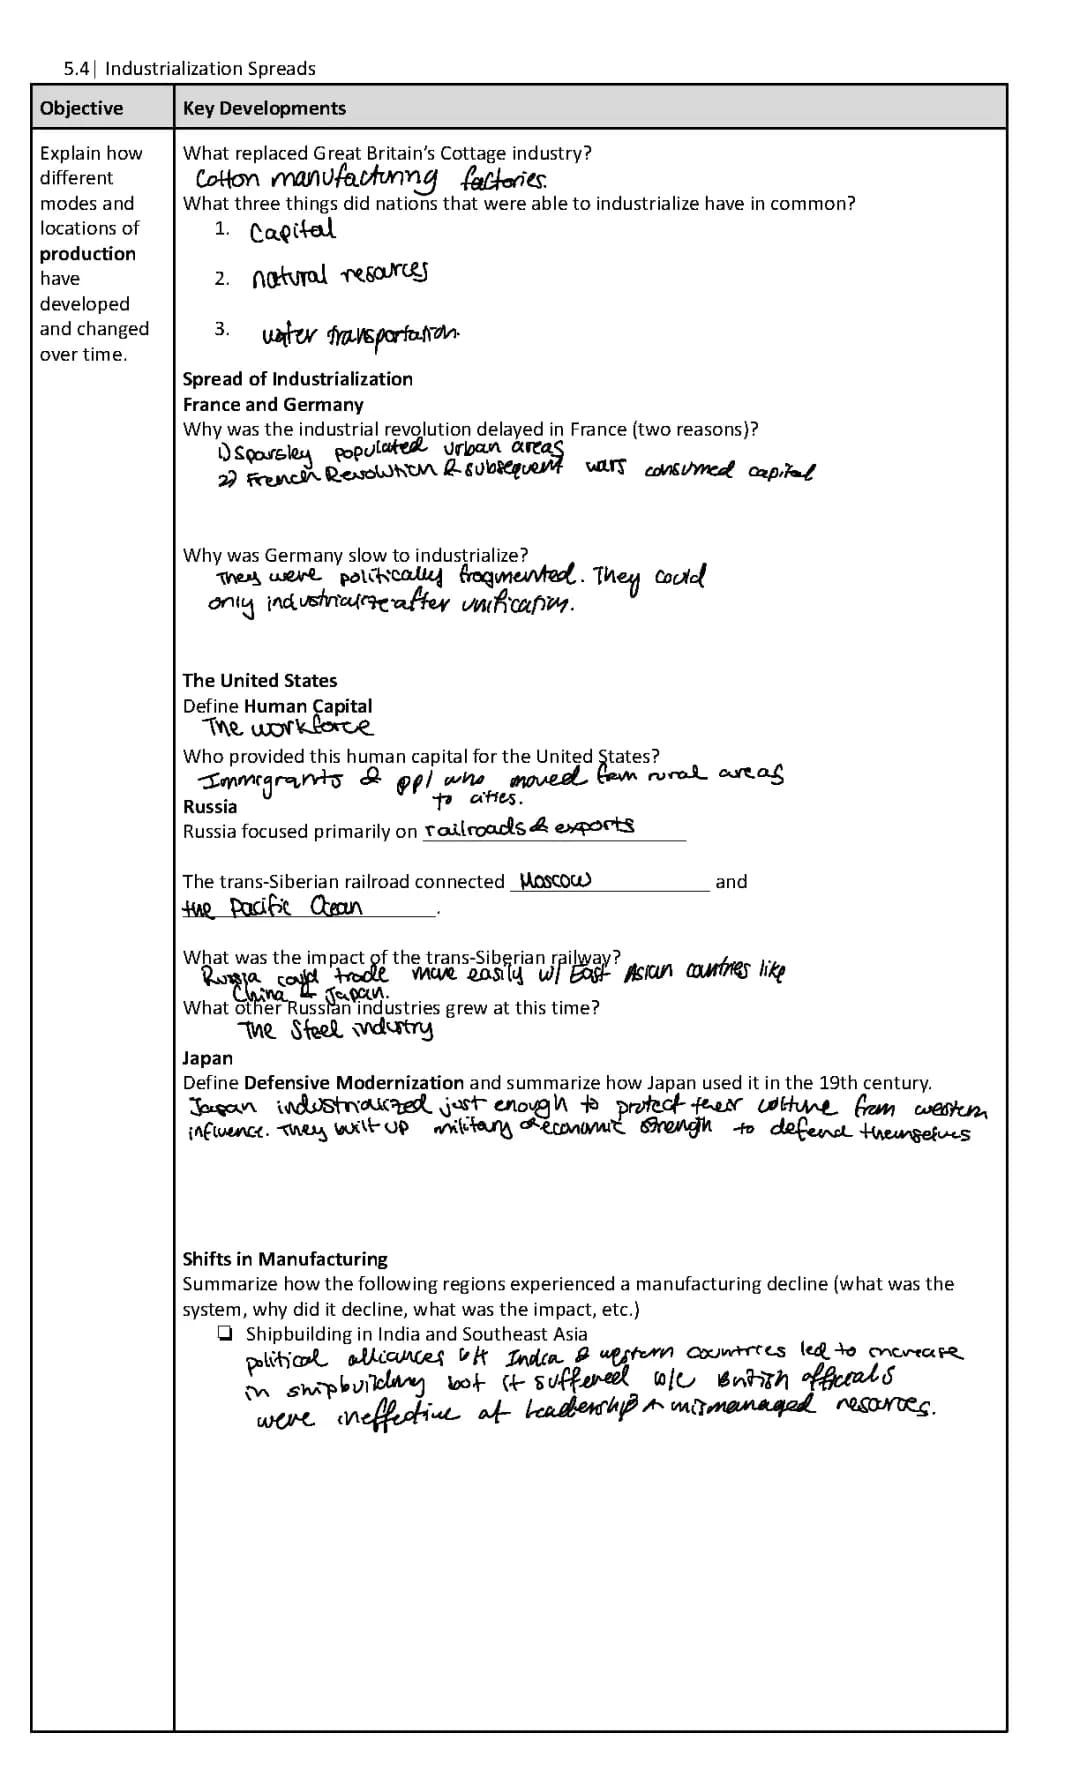 5.4| Industrialization Spreads
Objective
Key Developments
Explain how
different
modes and
locations of
production
have
developed
and changed
over time.
What replaced Great Britain's Cottage industry?
Cotton manufacturing factories.
What three things did nations that were able to industrialize have in common?
1. Capital
2. natural resources
3. water transportation.
Spread of Industrialization
France and Germany
Why was the industrial revolution delayed in France (two reasons)?
1) Sparsley populated urban areas
2) French Revolution & subsequent wars consumed capital
Why was Germany slow to industrialize?
They were politically fragmented. They could
only industrialize after unification.
The United States
Define Human Capital
The workforce
Who provided this human capital for the United States?
Immigrants & ppl who moved from rural areas
to cities.
Russia
Russia focused primarily on railroads & exports
The trans-Siberian railroad connected Moscow and
the Pacific Ocean.
What was the impact of the trans-Siberian railway?
Russia could trade more easily w/ East Asian countries like
China & Japan.
What other Russian industries grew at this time?
The Steel industry
Japan
Define Defensive Modernization and summarize how Japan used it in the 19th century.
Japan industrialized just enough to protect their culture from western
influence. They built up military & economic strength to defend themselves
Shifts in Manufacturing
Summarize how the following regions experienced a manufacturing decline (what was the
system, why did it decline, what was the impact, etc.)
❏ Shipbuilding in India and Southeast Asia
political alliances btt India & western countries led to increase
in shipbuilding but it suffered b/c British officials
were ineffective at leadership & mismanaged resources.